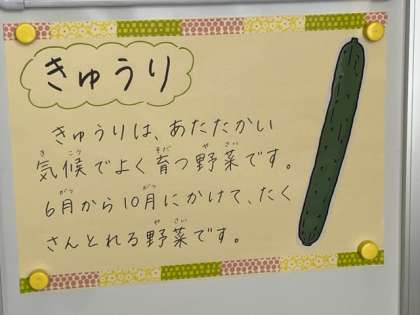 きゅうり
きゅうりは、あたたかい
気候でよく育つ野菜です。
6月から10月にかけて、たく
さんとれる野菜です。